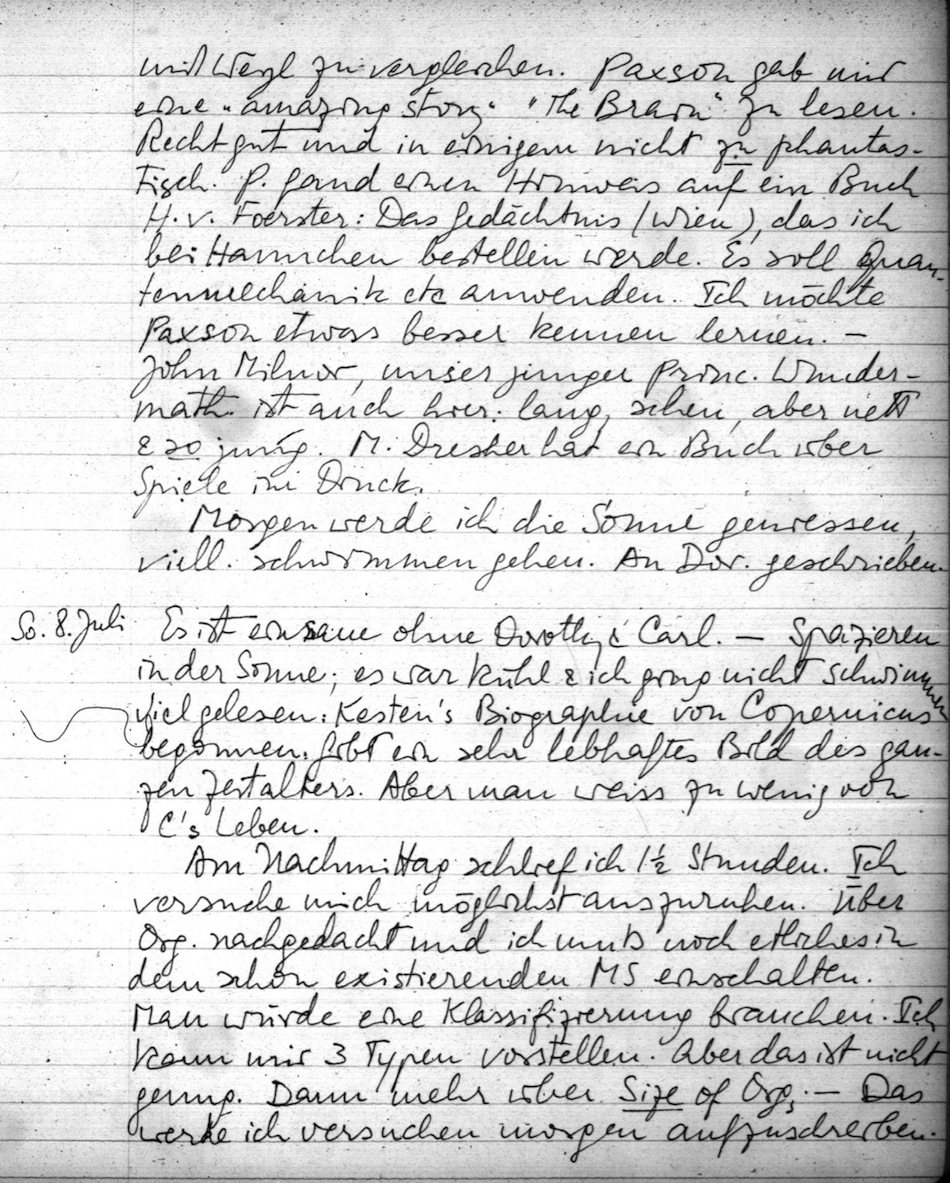 mit Weyl zu vergleichen. Paxson gab mir
eine "amazing story" "The Brain" zu lesen.
Recht gut und in einigem nicht zu phantas-
tisch. P. fand einen Hinweis auf ein Buch
H. v. Foerster: Das Gedächtnis (Wien), das ich
bei Hannchen bestellen werde. Es soll Quan-
tenmechanik etc anwenden. Ich möchte
Paxson etwas besser kennen lernen. –
John Milnor, unser junger Princ. Wunder-
math. ist auch hier. lang, schen, aber nett
& so jung. M. Dresher hat ein Buch über
Spiele im Druck.
Morgen werde ich die Sonne geniessen,
viell. schwimmen gehen. An Dor. geschrieben.
So. 8. Juli Es ist einsam ohne Dorothy & Carl. – Spazieren
in der Sonne; es war kühl & ich ging nicht schwimmen
Viel gelesen: Kesten's Biographie von Copernicus
begonnen. Gibt ein sehr lebhaftes Bild des gan-
zen Zeitalters. Aber man weiss zu wenig von
C's Leben.
Am Nachmittag schlief ich 1½ Stunden. Ich
versuche mich möglichst auszuruhen. Über
Org. nachgedacht und ich muß noch etliches in
dem schon existierenden MS einschalten.
Man würde eine Klassifizierung brauchen. Ich
kann mir 3 Typen vorstellen. Aber das ist nicht
genug. Dann mehr über Size of Org. – Das
werde ich versuchen morgen aufzuschreiben.